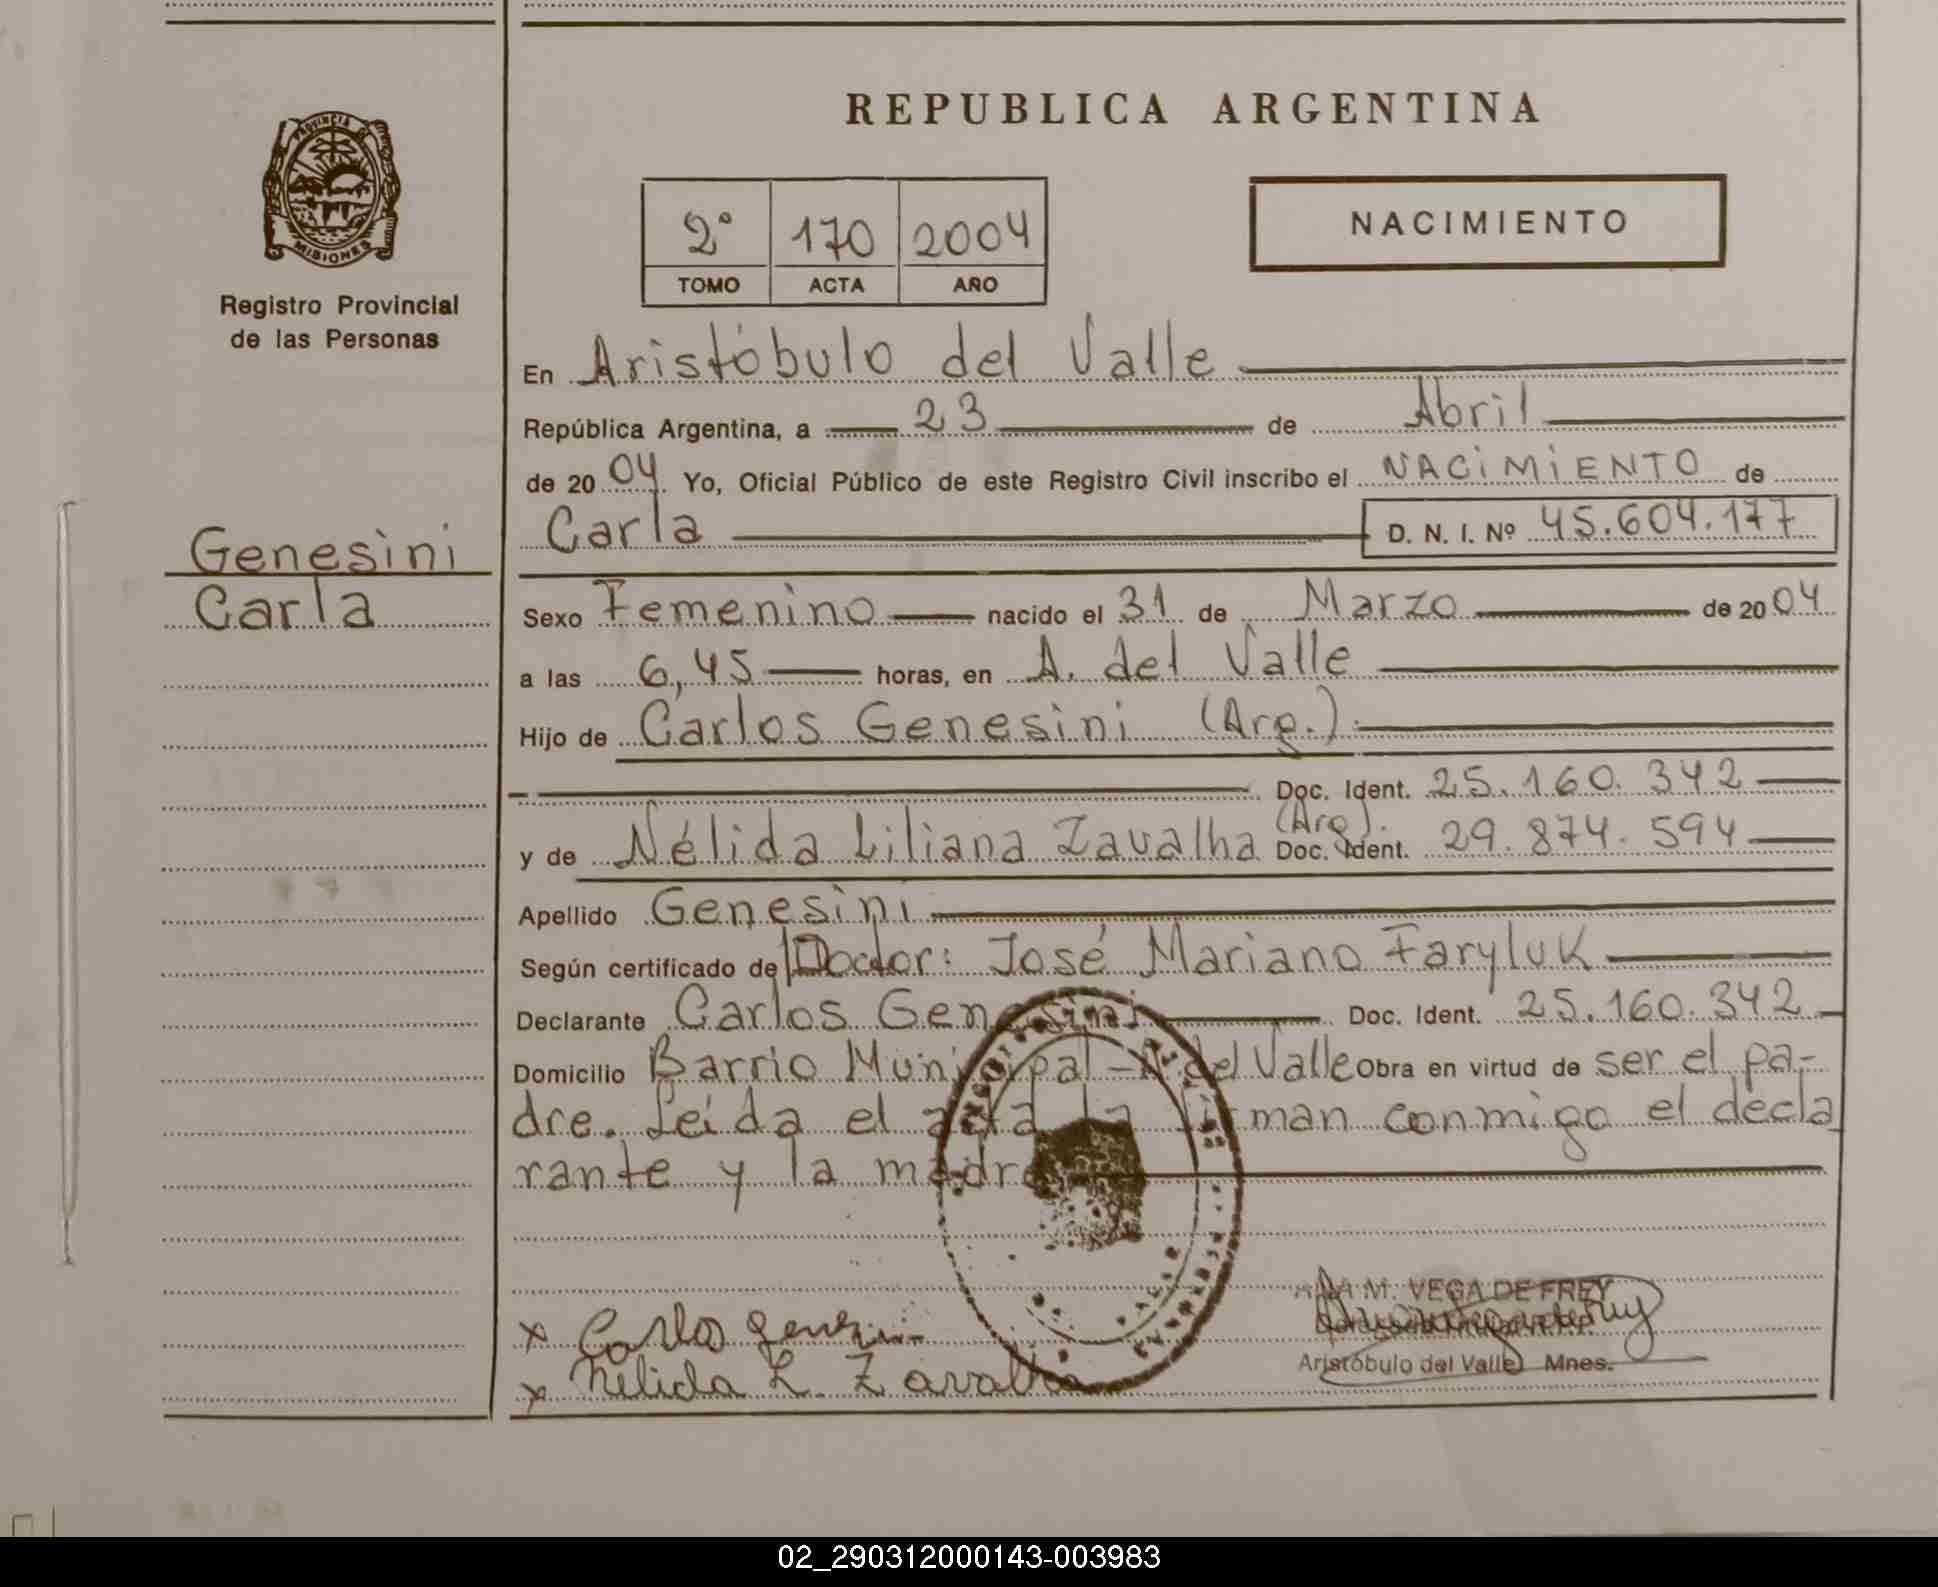 PROVINCIA DE
MISIONES
Registro Provincial
de las Personas
Genesini
Carla
REPUBLICA ARGENTINA
2° 170 2004
TOMO ACTA AÑO
NACIMIENTO
En Aristóbulo del Valle
República Argentina, a 23 de Abril
de 2004. Yo, Oficial Público de este Registro Civil inscribo el NACIMIENTO de
Carla D. N. I. Nº 45.604.177
Sexo Femenino nacido el 31 de Marzo de 2004
a las 6,45 horas, en A. del Valle
Hijo de Carlos Genesini (Arg.).
Doc. Ident. 25.160.342
y de Nélida Liliana Zavalha (Arg). Doc. Ident. 29.874.594
Apellido Genesini
Según certificado de Doctor: José Mariano Faryluk
Declarante Carlos Genesini Doc. Ident. 25.160.342
Domicilio Barrio Municipal - A. del Valle Obra en virtud de ser el pa-
dre. Leída el acta la firman conmigo el decla
rante y la madre
x Carlos Genesini
x Nelida L. Zavalha
M. VEGA DE FREY
Aristóbulo del Valle Mnes.
02_290312000143-003983